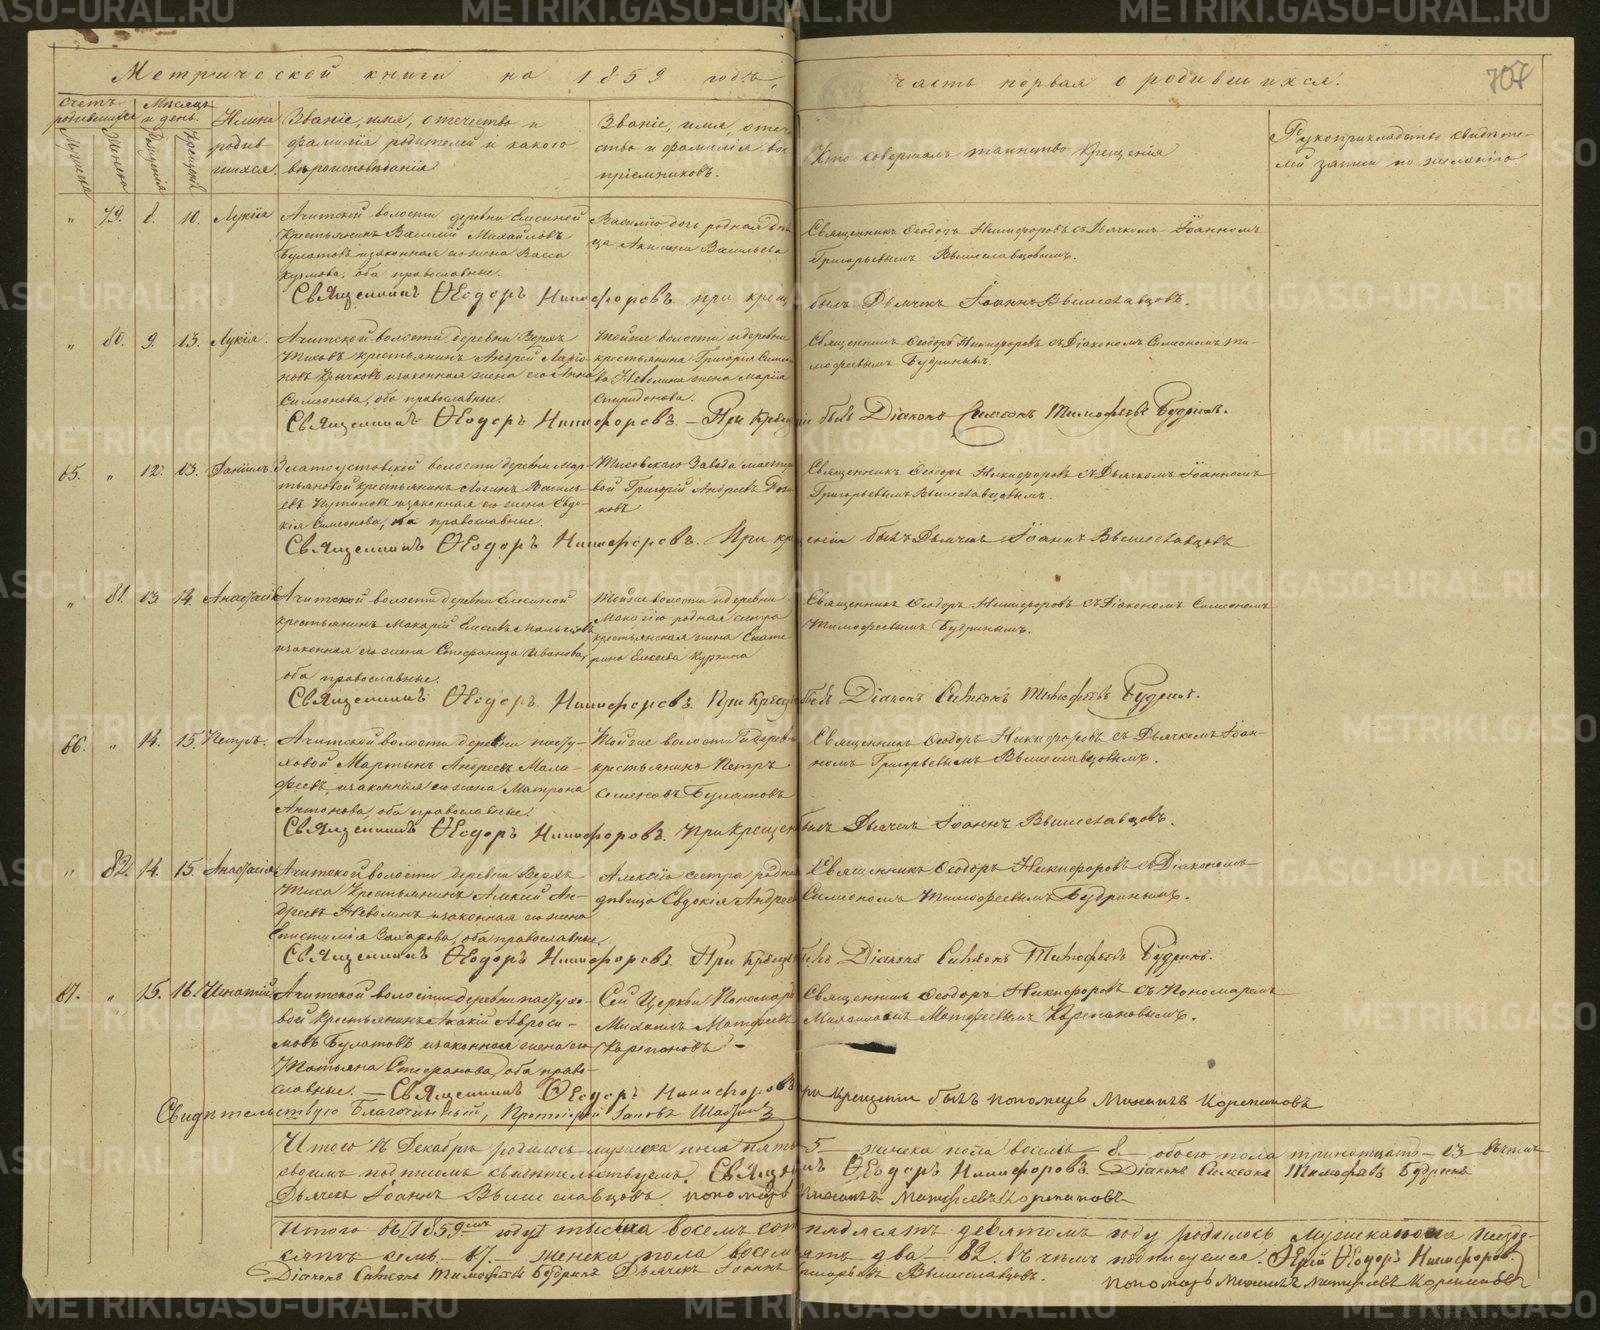 Метрической книги на 1859 годъ,
часть первая о родившихся.
707
Счетъ родившихся
Мѣсяцъ и день.
Имена родившихся.
Званіе, имя, отечество и фамилія родителей и какого вѣроисповѣданія
Званіе, имя, отечество и фамилія воспріемниковъ.
Кто совершалъ таинство крещенія
Рукоприкладство свидѣтелей записи по желанію
Мужеска
Женска
Рожденія
Крещенія
„ 79. 8. 10. Лукія
Ачитской волости деревни Еманной
крестьянинъ Василій Михайловъ
Булатовъ и законная его жена Васса
Кузмова, оба православные.
Василію дочь родная дѣвица Акилина Васильева
Священникъ Ѳеодоръ Никифоровъ съ Дьячкомъ Іоанномъ
Григорьевымъ Вышеславцовымъ.
Священникъ Ѳеодоръ Никифоровъ при крещ былъ Дьячекъ Іоаннъ Вышеславцовъ.
„ 80. 9. 13. Лукія.
Ачитской волости деревни Верхъ
Тисовъ крестьянинъ Андрей
и законная жена его Анна
Симеонова, оба православные.
Тойже волости и деревни
крестьянина Григорія
Неволина жена Марія
Спиридонова.
Священникъ Ѳеодоръ Никифоровъ съ Діакономъ Симеономъ Тимофеевымъ Будринымъ.
Священникъ Ѳеодоръ Никифоровъ. При Крещеніи былъ Діаконъ Симеонъ Тимофѣевъ Будринъ.
65. „ 12. 13. Даніилъ.
Златоустовской волости деревни Мартьяновой крестьянинъ Логинъ Васильевъ
и законная его жена Евдокія Симеонова, оба православные.
Тисовскаго Завода мастеровой Григорій Андреевъ
Священникъ Ѳеодоръ Никифоровъ съ Дьячкомъ Іоанномъ
Григорьевымъ Вышеславцовымъ.
Священникъ Ѳеодоръ Никифоровъ. При крещеніи былъ Дьячекъ Іоаннъ Вышеславцовъ
„ 81. 13 14. Анастасія
Ачитской волости деревни Еманной
крестьянинъ Макарій Елисеевъ
и законная его жена Стефанида Иванова,
оба православные.
Тойже волости и деревни
Макарію родная сестра
крестьянская жена Екатерина Елисеева Куркина
Священникъ Ѳеодоръ Никифоровъ съ Діакономъ Симеономъ
Тимофеевымъ Будринымъ.
Священникъ Ѳеодоръ Никифоровъ. При Крещ былъ Діаконъ Симеонъ Тимофѣевъ Будринъ.
66. „ 14. 15. Петръ.
Ачитской волости деревни Пастуховой Мартынъ Андреевъ Малафеевъ и законная его жена Матрона
Антонова, оба православные.
Тойже волости и деревни
крестьянинъ Петръ
Семеновъ Булатовъ
Священникъ Ѳеодоръ Никифоровъ съ Дьячкомъ Іоанномъ Григорьевымъ Вышеславцовымъ.
Священникъ Ѳеодоръ Никифоровъ. При крещен былъ Дьячекъ Іоаннъ Вышеславцовъ.
„ 82. 14. 15. Анастасія
Ачитской волости деревни Верхъ
Тиса Крестьянинъ Алексій Андреевъ Неволинъ и законная его жена
Епистимія Захарова, оба православные.
Алексію сестра родная
дѣвица Евдокія Андреева
Священникъ Ѳеодоръ Никифоровъ съ Діакономъ
Симеономъ Тимофеевымъ Будринымъ.
Священникъ Ѳеодоръ Никифоровъ. При Крещ былъ Діаконъ Симеонъ Тимофѣевъ Будринъ.
67. „ 15. 16. Игнатій
Ачитской волости деревни Пастуховой крестьянинъ Акакій Авросимовъ Булатовъ и законная жена его
Татьяна Стефанова, оба православные.
Сей Церкви Пономарь
Михаилъ Матфеевъ
Корепановъ
Священникъ Ѳеодоръ Никифоровъ съ Пономаремъ
Михаиломъ Матфеевымъ Корепановымъ.
Священникъ Ѳеодоръ Никифоровъ при крещеніи былъ пономарь Михаилъ Корепановъ
Свидѣтельствую Благочинный, Протоіерей
Итого въ Декабрѣ родилось мужеска пола пять 5 женска пола восемь 8. обоего пола тринатцать 13 въ чемъ
своимъ подписомъ свидѣтельствуемъ. Священникъ Ѳеодоръ Никифоровъ. Діаконъ Симеонъ Тимофѣевъ Будринъ
Дьячекъ Іоаннъ Вышеславцовъ пономарь Михаилъ Матфеевъ Корепановъ
Итого въ 1859мъ году тысяща восемъ сотъ пядесятъ девятомъ году родилось Мужеска пола шездесятъ семь 67. женска пола восемдесятъ два 82. въ чемъ подписуемся. Іерей Ѳеодоръ Никифоровъ
Діаконъ Симеонъ Тимофѣевъ Будринъ Дьячекъ Іоаннъ Григорьевъ Вышеславцовъ. пономарь Михаилъ Матфеевъ Корепановъ
METRIKI.GASO-URAL.RU